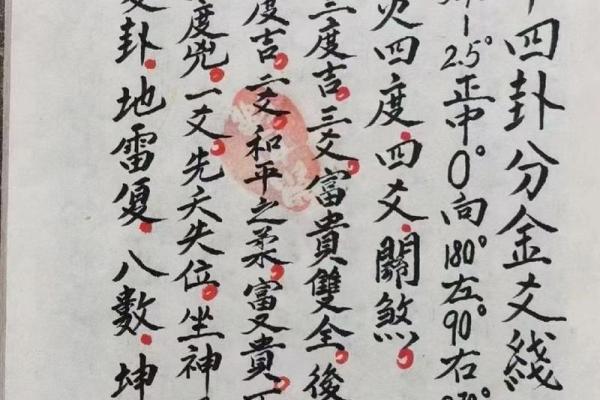 四卦分金爻綫
2.5°正中0°向180°左90°右
四度.四爻.關煞.
三度吉.三爻.富貴雙全.後
度吉.二爻.和平之柔.富又貴.
度兇.一爻.先天失位.坐神
卦.地雷復.八數.坤